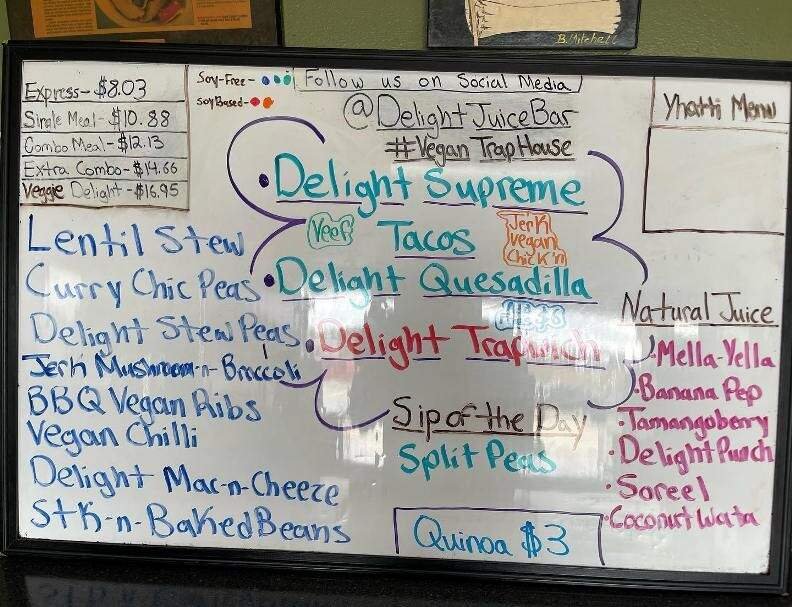 B. Mitchell
Express - $8.03
Single Meal - $10.88
Combo Meal - $12.13
Extra Combo - $14.66
Veggie Delight - $16.95
Soy-Free -
Soy Based -
Follow us on Social Media
@DelightJuiceBar
#Vegan TrapHouse
Yhatti Menu
• Delight Supreme
Veef
Tacos
Jerk
Vegan
Chick'n
• Delight Quesadilla
• Delight Trapwich
Lentil Stew
Curry Chic Peas
Delight Stew Peas
Jerk Mushroom-n-Broccoli
BBQ Vegan Ribs
Vegan Chilli
Delight Mac-n-Cheeze
Stk-n-Baked Beans
Sip of the Day
Split Peas
Quinoa $3
Natural Juice
• Mella-Yella
• Banana Pep
• Tamangoberry
• Delight Punch
• Soreel
• Coconut Wata